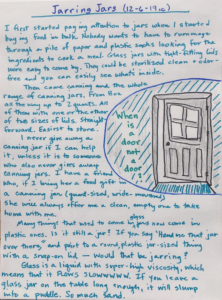 Jarring Jars (12-6-19...)
I first started paying attention to jars when I started
buying food in bulk. Nobody wants to have to rummage
through a pile of paper and plastic sacks looking for the
ingredients to cook a meal. Glass jars with tight-fitting lids
were easy to come by. They could be sterilized clean + odor-
free and you can easily see what's inside.
Then came canning and the whole
range of canning jars, from 4oz
all the way up to 2 quarts. All
of them with one or the other
of two sizes of lids. Straight
forward. Easiest to store.
I never give away a
canning jar if I can help
it, unless it is to someone
who also never gives away
canning jars. I have a friend
who, if I bring her a food gift in
a canning jar (quart-sized, wide-mouthed)
she will always offer me a clean, empty one to take
home with me.
When is
a
door
not
a
door?
glass
Many things that used to come in jars now come in
plastic ones. Is it still a jar? If you say "Hand me that jar
over there" and point to a round, plastic jar-sized thing
with a snap-on lid — would that be jarring?
Glass is a liquid with super-high viscosity, which
means that it flows SLOWWWWW. If you leave a
glass jar on the table long enough, it will slump
into a puddle. So much sand.